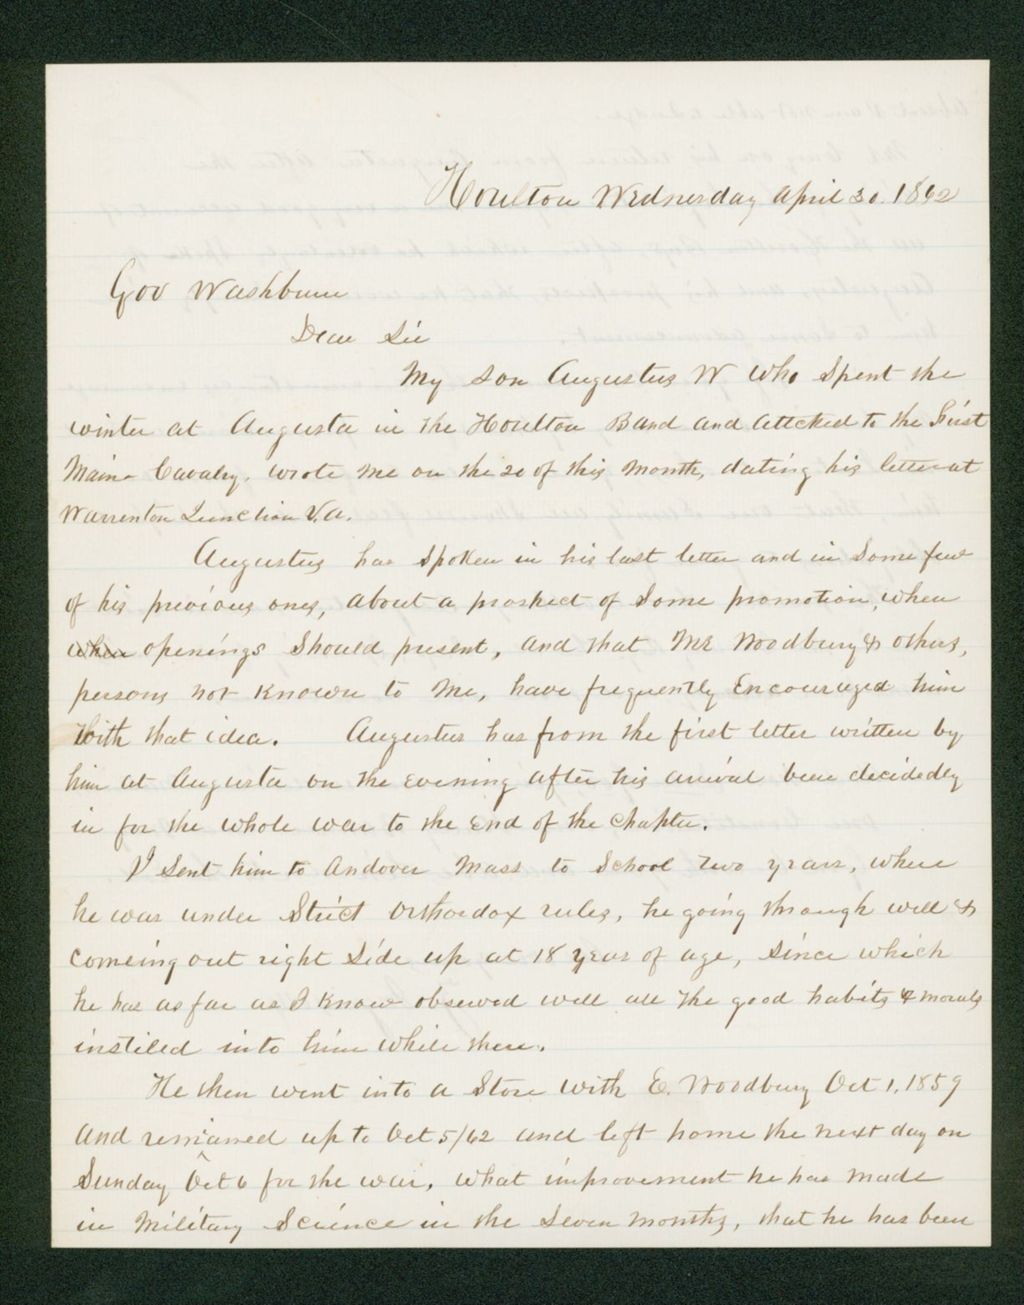 Houlton Wednesday April 30. 1862
Gov Washburn
Dear Sir
My son Augustus W who spent the
winter at Augusta in the Houlton Band and attcked to the First
Maine Cavalry, wrote me on the 20 of this month, dating his letter at
Warrenton Junction V.a.
Augustus has spoken in his last letter and in some few
of his previous ones, about a prospect of some promotion, when
when openings should present, and that Mr Woodbury & others,
persons not known to me, have frequently encouraged him
with that idea. Augustus has from the first letter written by
him at Augusta on the evening after his arrival been decidedly
in for the whole war to the end of the chapter.
I sent him to Andover Mass to School two years, where
he was under Strict Orthordox rules, he going through well &
comeing out right side up at 18 years of age, since which
he has as far as I know observed well all the good habits & morals
instiled into him while there.
He then went into a Store with E. Woodbury Oct 1, 1859
and remained up to Oct 5/62 and left home the next day on
Sunday ^ Oct 6 for the war, what improvement he has made
in Military Science in the seven months, that he has been